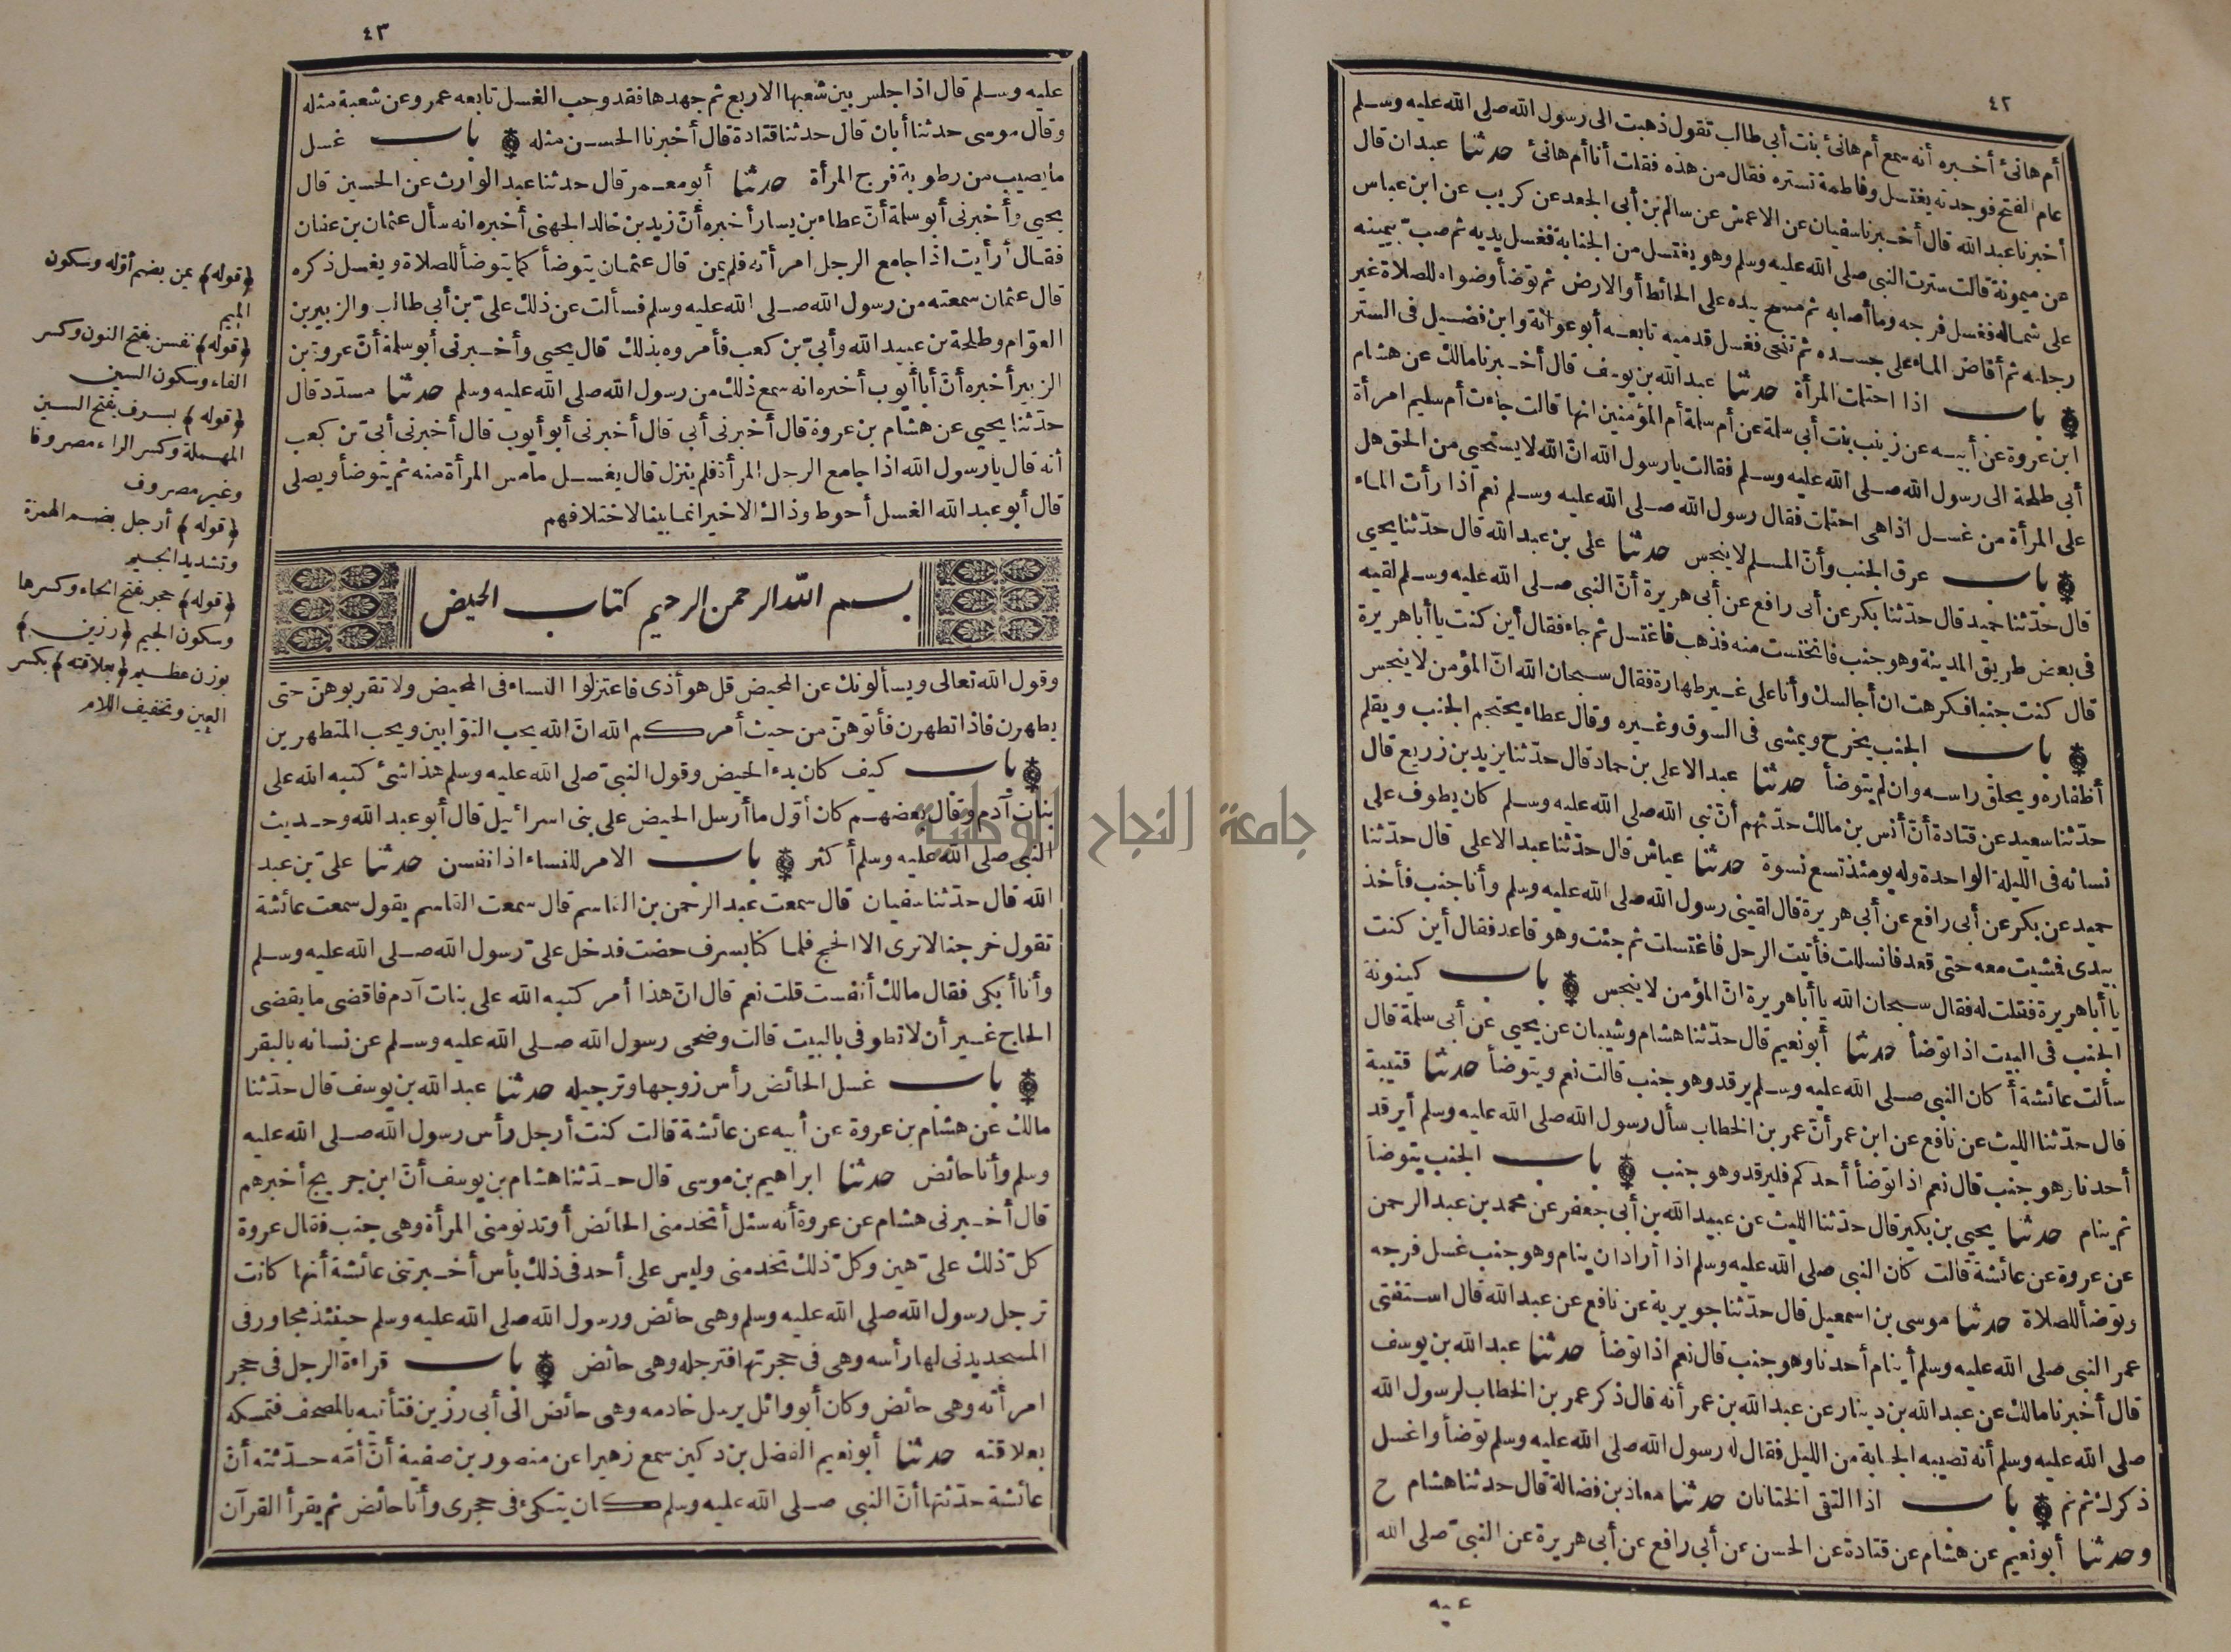 ٤٢
أم هانئ أخبره أنه سمع أم هانئ بنت أبي طالب تقول ذهبت الى رسول الله صلى الله عليه وسلم
عام الفتح فوجدته يغتسل وفاطمة تستره فقال من هذه فقلت أنا أم هانئ حدثنا عبدان قال
أخبرنا عبد الله قال أخبرنا سفيان عن الاعمش عن سالم بن أبي الجعد عن كريب عن ابن عباس
عن ميمونة قالت سترت النبي صلى الله عليه وسلم وهو يغتسل من الجنابة فغسل يديه ثم صب بيمينه
على شماله فغسل فرجه وما أصابه ثم مسح بيده على الحائط أو الارض ثم توضأ وضوأه للصلاة غير
رجليه ثم أفاض الماء على جسده ثم تنحى فغسل قدميه تابعه أبو عوانة وابن فضيل في الستر
باب اذا احتلمت المرأة حدثنا عبد الله بن يوسف قال أخبرنا مالك عن هشام
ابن عروة عن أبيه عن زينب بنت أبي سلمة عن أم سلمة أم المؤمنين انها قالت جاءت أم سليم امرأة
أبي طلحة الى رسول الله صلى الله عليه وسلم فقالت يا رسول الله انّ الله لا يستحيي من الحق هل
على المرأة من غسل اذا هي احتلمت فقال رسول الله صلى الله عليه وسلم نعم اذا رأت الماء
باب عرق الجنب وأنّ المسلم لا ينجس حدثنا علي بن عبد الله قال حدّثنا يحيي
قال حدّثنا حميد قال حدّثنا بكر عن أبي رافع عن أبي هريرة أنّ النبي صلى الله عليه وسلم لقيه
في بعض طريق المدينة وهو جنب فانخنست منه فذهب فاغتسل ثم جاء فقال أين كنت يا أبا هريرة
قال كنت جنبا فكرهت ان أجالسك وأنا على غير طهارة فقال سبحان الله انّ المؤمن لا ينجس
باب الجنب يخرج ويمشي في السوق وغيره وقال عطاء يحتجم الجنب ويقلم
أظفاره ويحلق راسه وان لم يتوضأ حدثنا عبد الاعلى بن حماد قال حدّثنا يزيد بن زريع قال
حدّثنا سعيد عن قتادة أنّ أنس بن مالك حدّثهم أنّ نبي الله صلى الله عليه وسلم كان يطوف على
نسائه في الليلة الواحدة وله يومئذ تسع نسوة حدثنا عياش قال حدّثنا عبد الاعلى قال حدّثنا
حميد عن بكر عن أبي رافع عن أبي هريرة قال لقيني رسول الله صلى الله عليه وسلم وأنا جنب فأخذ
بيدي فمشيت معه حتى قعد فانسللت فأتيت الرحل فاغتسلت ثم جئت وهو قاعد فقال أين كنت
يا أبا هريرة فقلت له فقال سبحان الله يا أبا هريرة انّ المؤمن لا ينجس باب كينونة
الجنب في البيت اذا توضأ حدثنا أبو نعيم قال حدّثنا هشام وشيبان عن يحيي عن أبي سلمة قال
سألت عائشة أكان النبي صلى الله عليه وسلم يرقد وهو جنب قالت نعم ويتوضأ حدثنا قتيبة
قال حدّثنا الليث عن نافع عن ابن عمر أنّ عمر بن الخطاب سأل رسول الله صلى الله عليه وسلم أيرقد
أحدنا وهو جنب قال نعم اذا توضأ أحدكم فليرقد وهو جنب باب الجنب يتوضأ
ثم ينام حدثنا يحيي بن بكير قال حدّثنا الليث عن عبيد الله بن أبي جعفر عن محمد بن عبد الرحمن
عن عروة عن عائشة قالت كان النبي صلى الله عليه وسلم اذا أراد ان ينام وهو جنب غسل فرجه
وتوضأ للصلاة حدثنا موسى بن اسمعيل قال حدّثنا جويرية عن نافع عن عبد الله قال استفتى
عمر النبي صلى الله عليه وسلم أينام أحدنا وهو جنب قال نعم اذا توضأ حدثنا عبد الله بن يوسف
قال أخبرنا مالك عن عبد الله بن دينار عن عبد الله بن عمر أنه قال ذكر عمر بن الخطاب لرسول الله
صلى الله عليه وسلم أنه تصيبه الجنابة من الليل فقال له رسول الله صلى الله عليه وسلم توضأ واغسل
ذكرك ثم نم باب اذا التقى الختانان حدثنا معاذ بن فضالة قال حدثنا هشام ح
وحدثنا أبو نعيم عن هشام عن قتادة عن الحسن عن أبي رافع عن أبي هريرة عن النبيّ صلى الله
عليه
٤٣
عليه وسلم قال اذا جلس بين شعبها الاربع ثم جهدها فقد وجب الغسل تابعه عمرو عن شعبة مثله
وقال موسى حدثنا أبان قال حدثنا قتادة قال أخبرنا الحسن مثله باب غسل
ما يصيب من رطوبة فرج المرأة حدثنا أبو معمر قال حدثنا عبد الوارث عن الحسين قال
يحيي وأخبرني أبو سلمة أنّ عطاء بن يسار أخبره أنّ زيد بن خالد الجهني أخبره انه سأل عثمان بن عفان
فقال أرأيت اذا جامع الرجل امرأته فلم يمن قال عثمان يتوضأ كما يتوضأ للصلاة ويغسل ذكره
قال عثمان سمعته من رسول الله صلى الله عليه وسلم فسألت عن ذلك عليّ بن أبي طالب والزبير بن
العوّام وطلحة بن عبيد الله وأبيّ بن كعب فأمروه بذلك قال يحيي وأخبرني أبو سلمة أنّ عروة بن
الزبير أخبره أنّ أبا أيوب أخبره انه سمع ذلك من رسول الله صلى الله عليه وسلم حدثنا مسدّد قال
حدّثنا يحيي عن هشام بن عروة قال أخبرني أبي قال أخبرني أبو أيوب قال أخبرني أبيّ بن كعب
أنه قال يا رسول الله اذا جامع الرجل المرأة فلم ينزل قال يغسل ما مس المرأة منه ثم يتوضأ ويصلي
قال أبو عبد الله الغسل أحوط وذاك الاخير انما بينا لاختلافهم
بسم الله الرحمن الرحيم كتاب الحيض
وقول الله تعالى ويسألونك عن المحيض قل هو أذى فاعتزلوا النساء في المحيض ولا تقربوهنّ حتى
يطهرن فاذا تطهرن فأتوهنّ من حيث أمركم الله انّ الله يحب التوّابين ويحب المتطهرين
باب كيف كان بدء الحيض وقول النبيّ صلى الله عليه وسلم هذا شئ كتبه الله على
بنات آدم وقال بعضهم كان أوّل ما أرسل الحيض على بني اسرائيل قال أبو عبد الله وحديث
النبي صلى الله عليه وسلم أكثر باب الامر للنساء اذا نفسن حدثنا عليّ بن عبد
الله قال حدّثنا سفيان قال سمعت عبد الرحمن بن القاسم قال سمعت القاسم يقول سمعت عائشة
تقول خرجنا لا نرى الا الحج فلما كنا بسرف حضت فدخل عليّ رسول الله صلى الله عليه وسلم
وأنا أبكي فقال مالك أنفست قلت نعم قال انّ هذا أمر كتبه الله على بنات آدم فاقضي ما يقضي
الحاج غير أن لا تطوفي بالبيت قالت وضحى رسول الله صلى الله عليه وسلم عن نسائه بالبقر
باب غسل الحائض رأس زوجها وترجيله حدثنا عبد الله بن يوسف قال حدّثنا
مالك عن هشام بن عروة عن أبيه عن عائشة قالت كنت أرجل رأس رسول الله صلى الله عليه
وسلم وأنا حائض حدثنا ابراهيم بن موسى قال حدّثنا هشام بن يوسف أنّ ابن جريج أخبرهم
قال أخبرني هشام عن عروة أنه سئل أتخدمني الحائض أو تدنو مني المرأة وهي جنب فقال عروة
كلّ ذلك عليّ هين وكلّ ذلك تخدمني وليس على أحد في ذلك بأس أخبرتني عائشة أنها كانت
ترجل رسول الله صلى الله عليه وسلم وهي حائض ورسول الله صلى الله عليه وسلم حينئذ مجاور في
المسجد يدني لها رأسه وهي في حجرتها فترجله وهي حائض باب قراءة الرجل في حجر
امرأته وهي حائض وكان أبو وائل يرسل خادمه وهي حائض الى أبي رزين فتأتيه بالمصحف فتمسكه
بعلاقته حدثنا أبو نعيم الفضل بن دكين سمع زهيرا عن منصور بن صفية أنّ أمّه حدّثته أنّ
عائشة حدّثتها أنّ النبي صلى الله عليه وسلم كان يتكئ في حجري وأنا حائض ثم يقرأ القرآن
﴿قوله﴾ يمن بضم أوّله وسكون
الميم
﴿قوله﴾ نفسن بفتح النون وكسر
الفاء وسكون السين
﴿قوله﴾ بسرف بفتح السين
المهملة وكسر الراء مصروفا
وغير مصروف
﴿قوله﴾ أرجل بضم الهمزة
وتشديد الجيم
﴿قوله﴾ حجر بفتح الحاء وكسرها
وسكون الجيم ﴿رزين﴾
بوزن عظيم ﴿بعلاقته﴾ بكسر
العين وتخفيف اللام
جامعة النجاح الوطنية